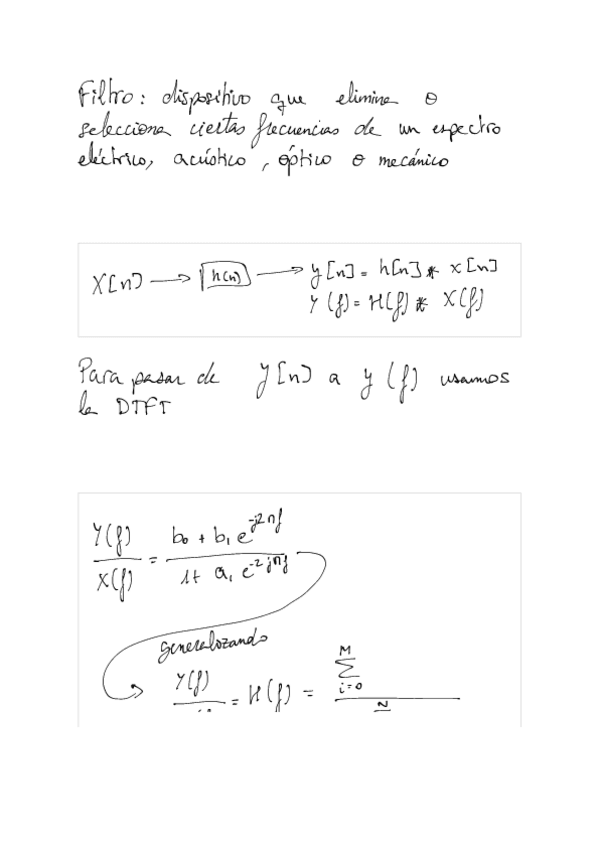 Filtro: dispositivo que elimina o
selecciona ciertas frecuencias de un espectro
eléctrico, acústico, óptico o mecánico
x[n] → h(n) → y[n] = h[n] * x[n]
Y(f) = H(f) * X(f)
Para pasar de y[n] a y(f) usamos
la DTFT
Y(f)/X(f) = (b₀ + b₁ e^(-j2πf))/(1 + a₁ e^(-2jπf))
generalozando
Y(f)/ = H(f) = M ∑ i=0 / N